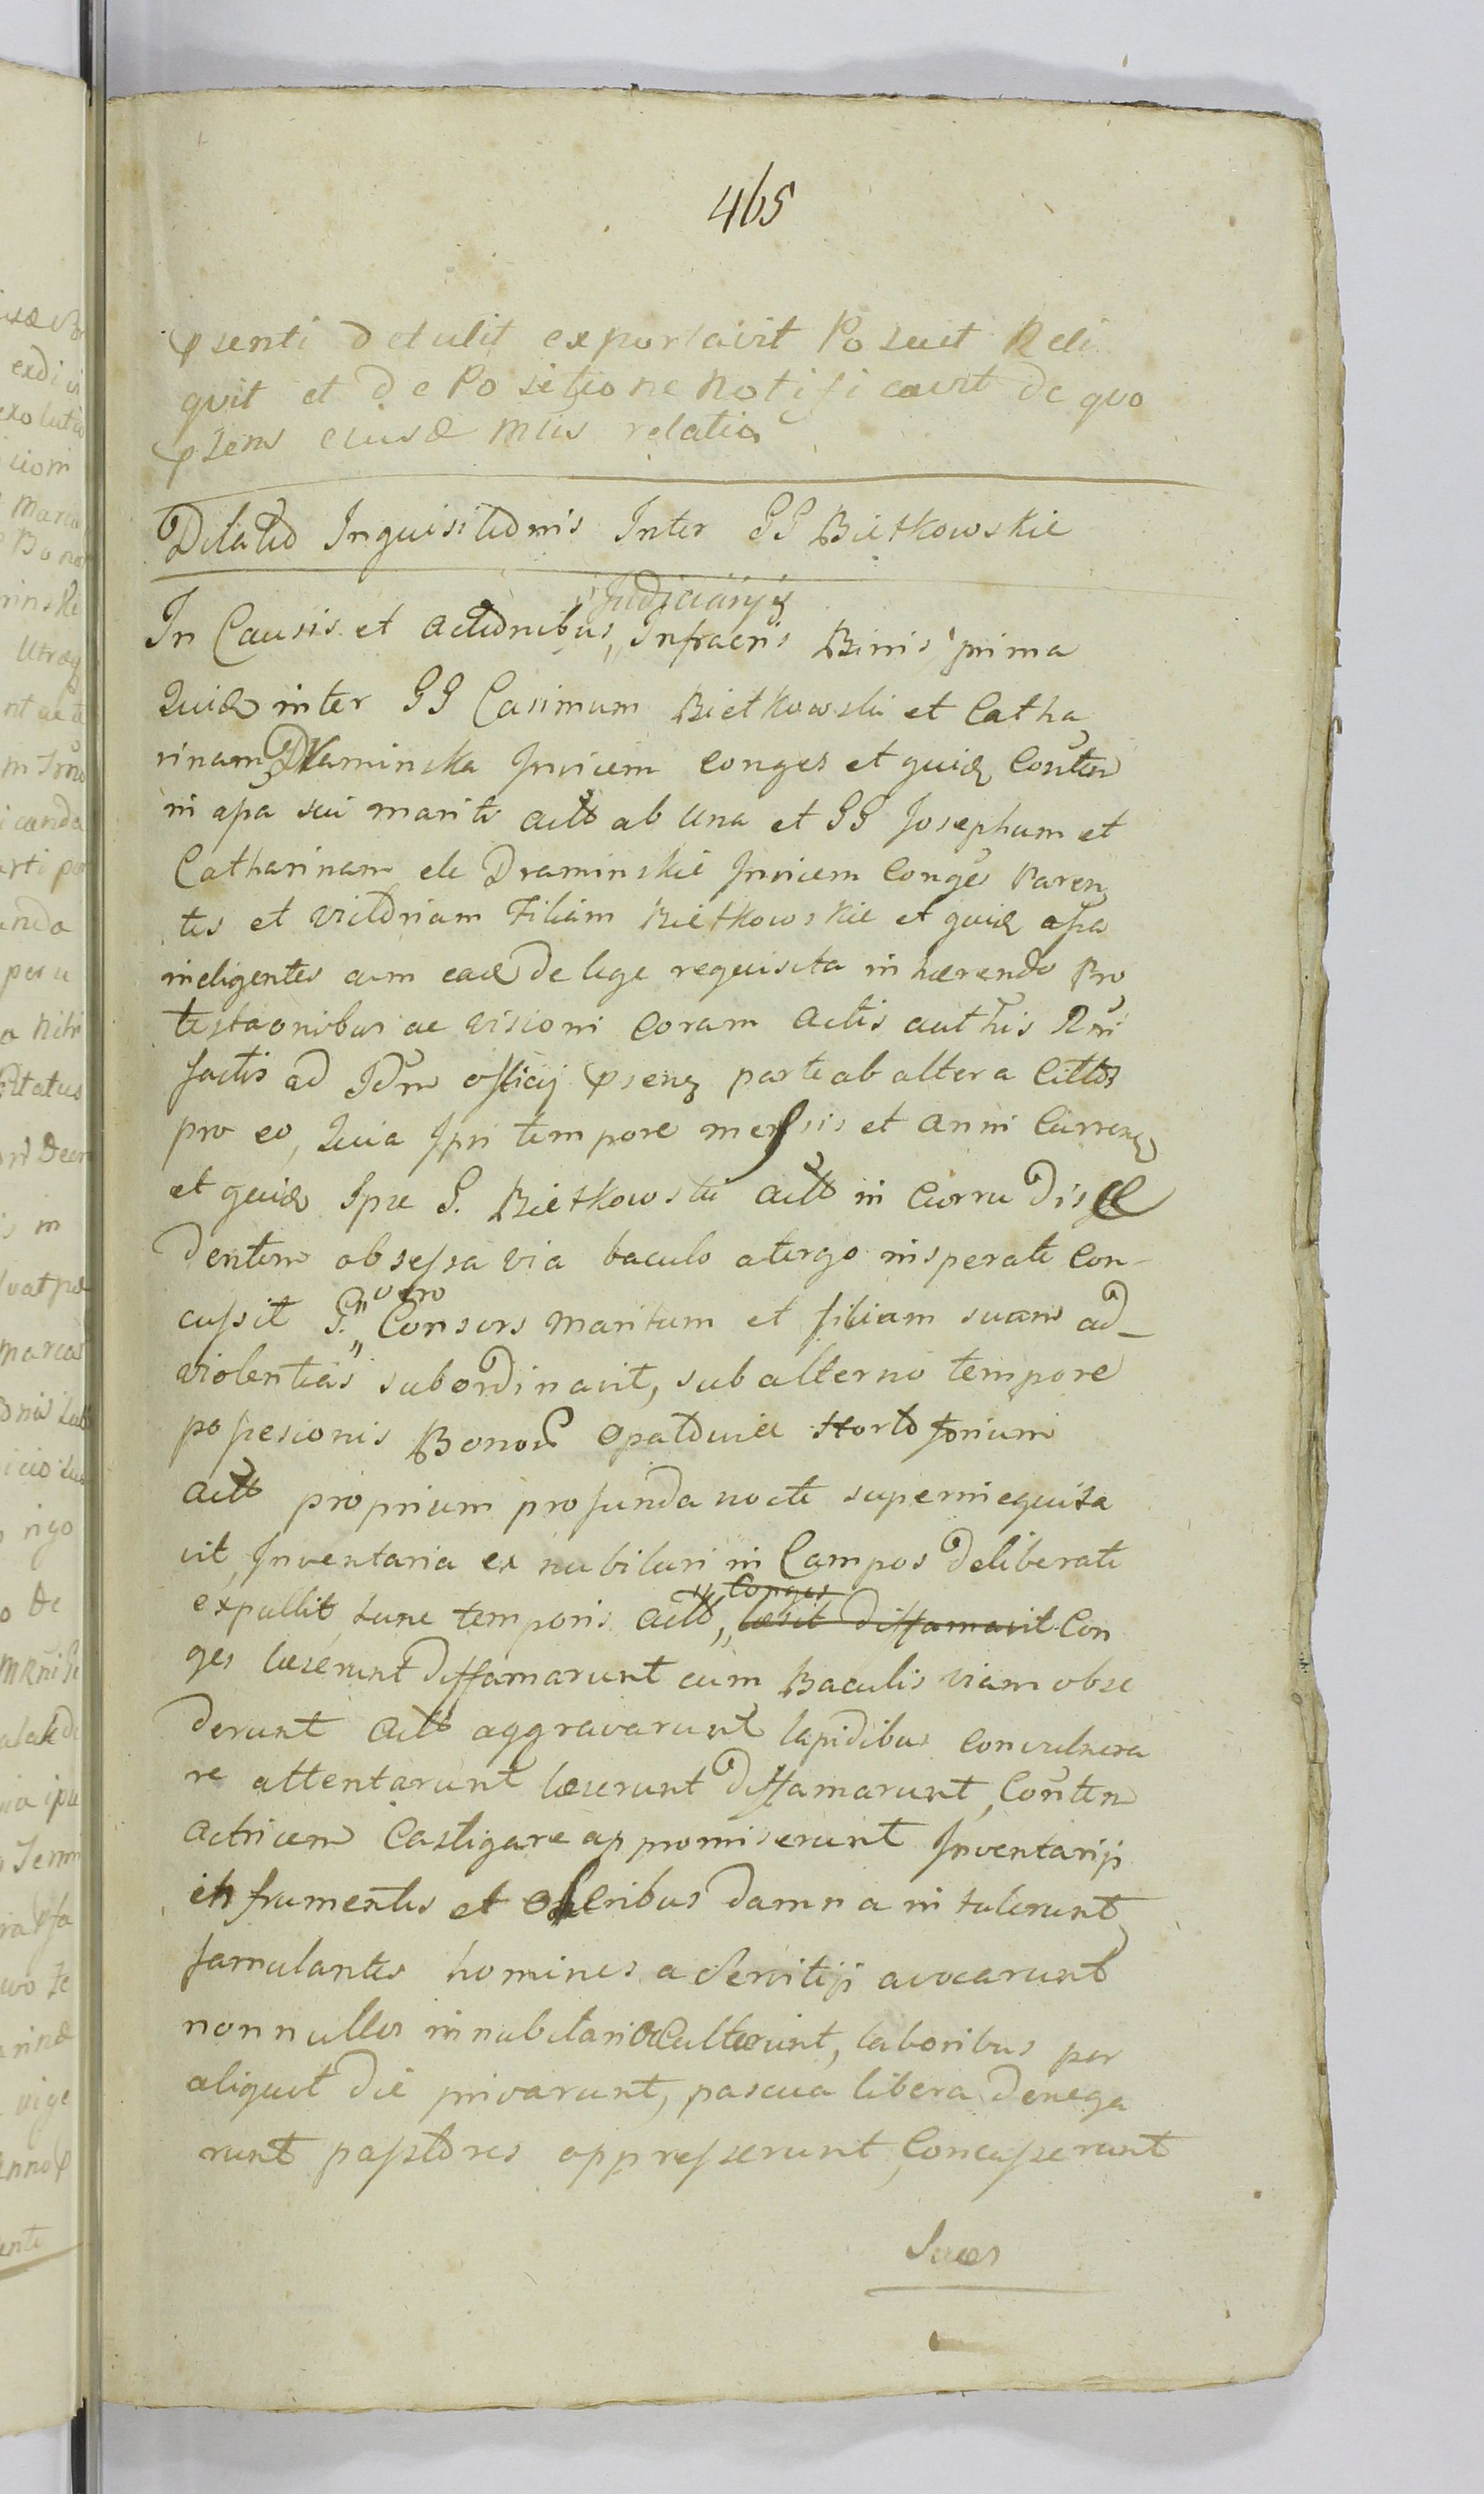 465
psenti detulit exportavit Posuit Reli
quit et de Positione notificavit de quo
psens eiusd mtis relatio
Dilatio Inquisitionis Inter GG Bietkowskie
Judiciarijs
In Causis et actionibus, Infracris Binis prima
Quid inter GG Casimum Bietkowski et Catha
rinam Draminska Invicem conges et quid Conten
in apa sui mariti actt ab una et GG Josephum et
Catharinam de Draminskie Invicem Conges Paren
tes et Victoriam Filiam Bietkowskie et quid apa
indigentes cum ead de lege requisita in hærendo Pro
testaonibus ac visioni coram actis authis Rni
factis ad Idm officij psenq parte ab altera Cittos
pro eo, Quia Ipsi tempore mensis et anni Curren
et quid Ipse G. Bietkowski actt in Curru disce
dentem obsessa via baculo atergo insperate Con-
cussit G. vero Consors maritum et filiam suam ad
violentias subordinavit, sub alterno tempore
possesionis Bonor Opatowie Horto forium
actt proprium profunda nocte superinequita
vit, Inventaria ex nubiluri in Campos deliberate
expullit tunc temporis actt, læsit diffamavit Con
ges læserunt diffamarunt cum Baculis viam obse
derunt actt aggravarunt lapidibus convulnera
re attentarunt læserunt diffamarunt, Conten
actricem Castigare appromiserunt Inventariji
in frumentis et oleribus damna intulerunt
famulantes homines a servitiji avocarunt
nonnullos in nubilari occulterunt, laboribus per
aliquot die privarunt, pascua libera denega
runt pastores oppresserunt, Concusserunt
Suos